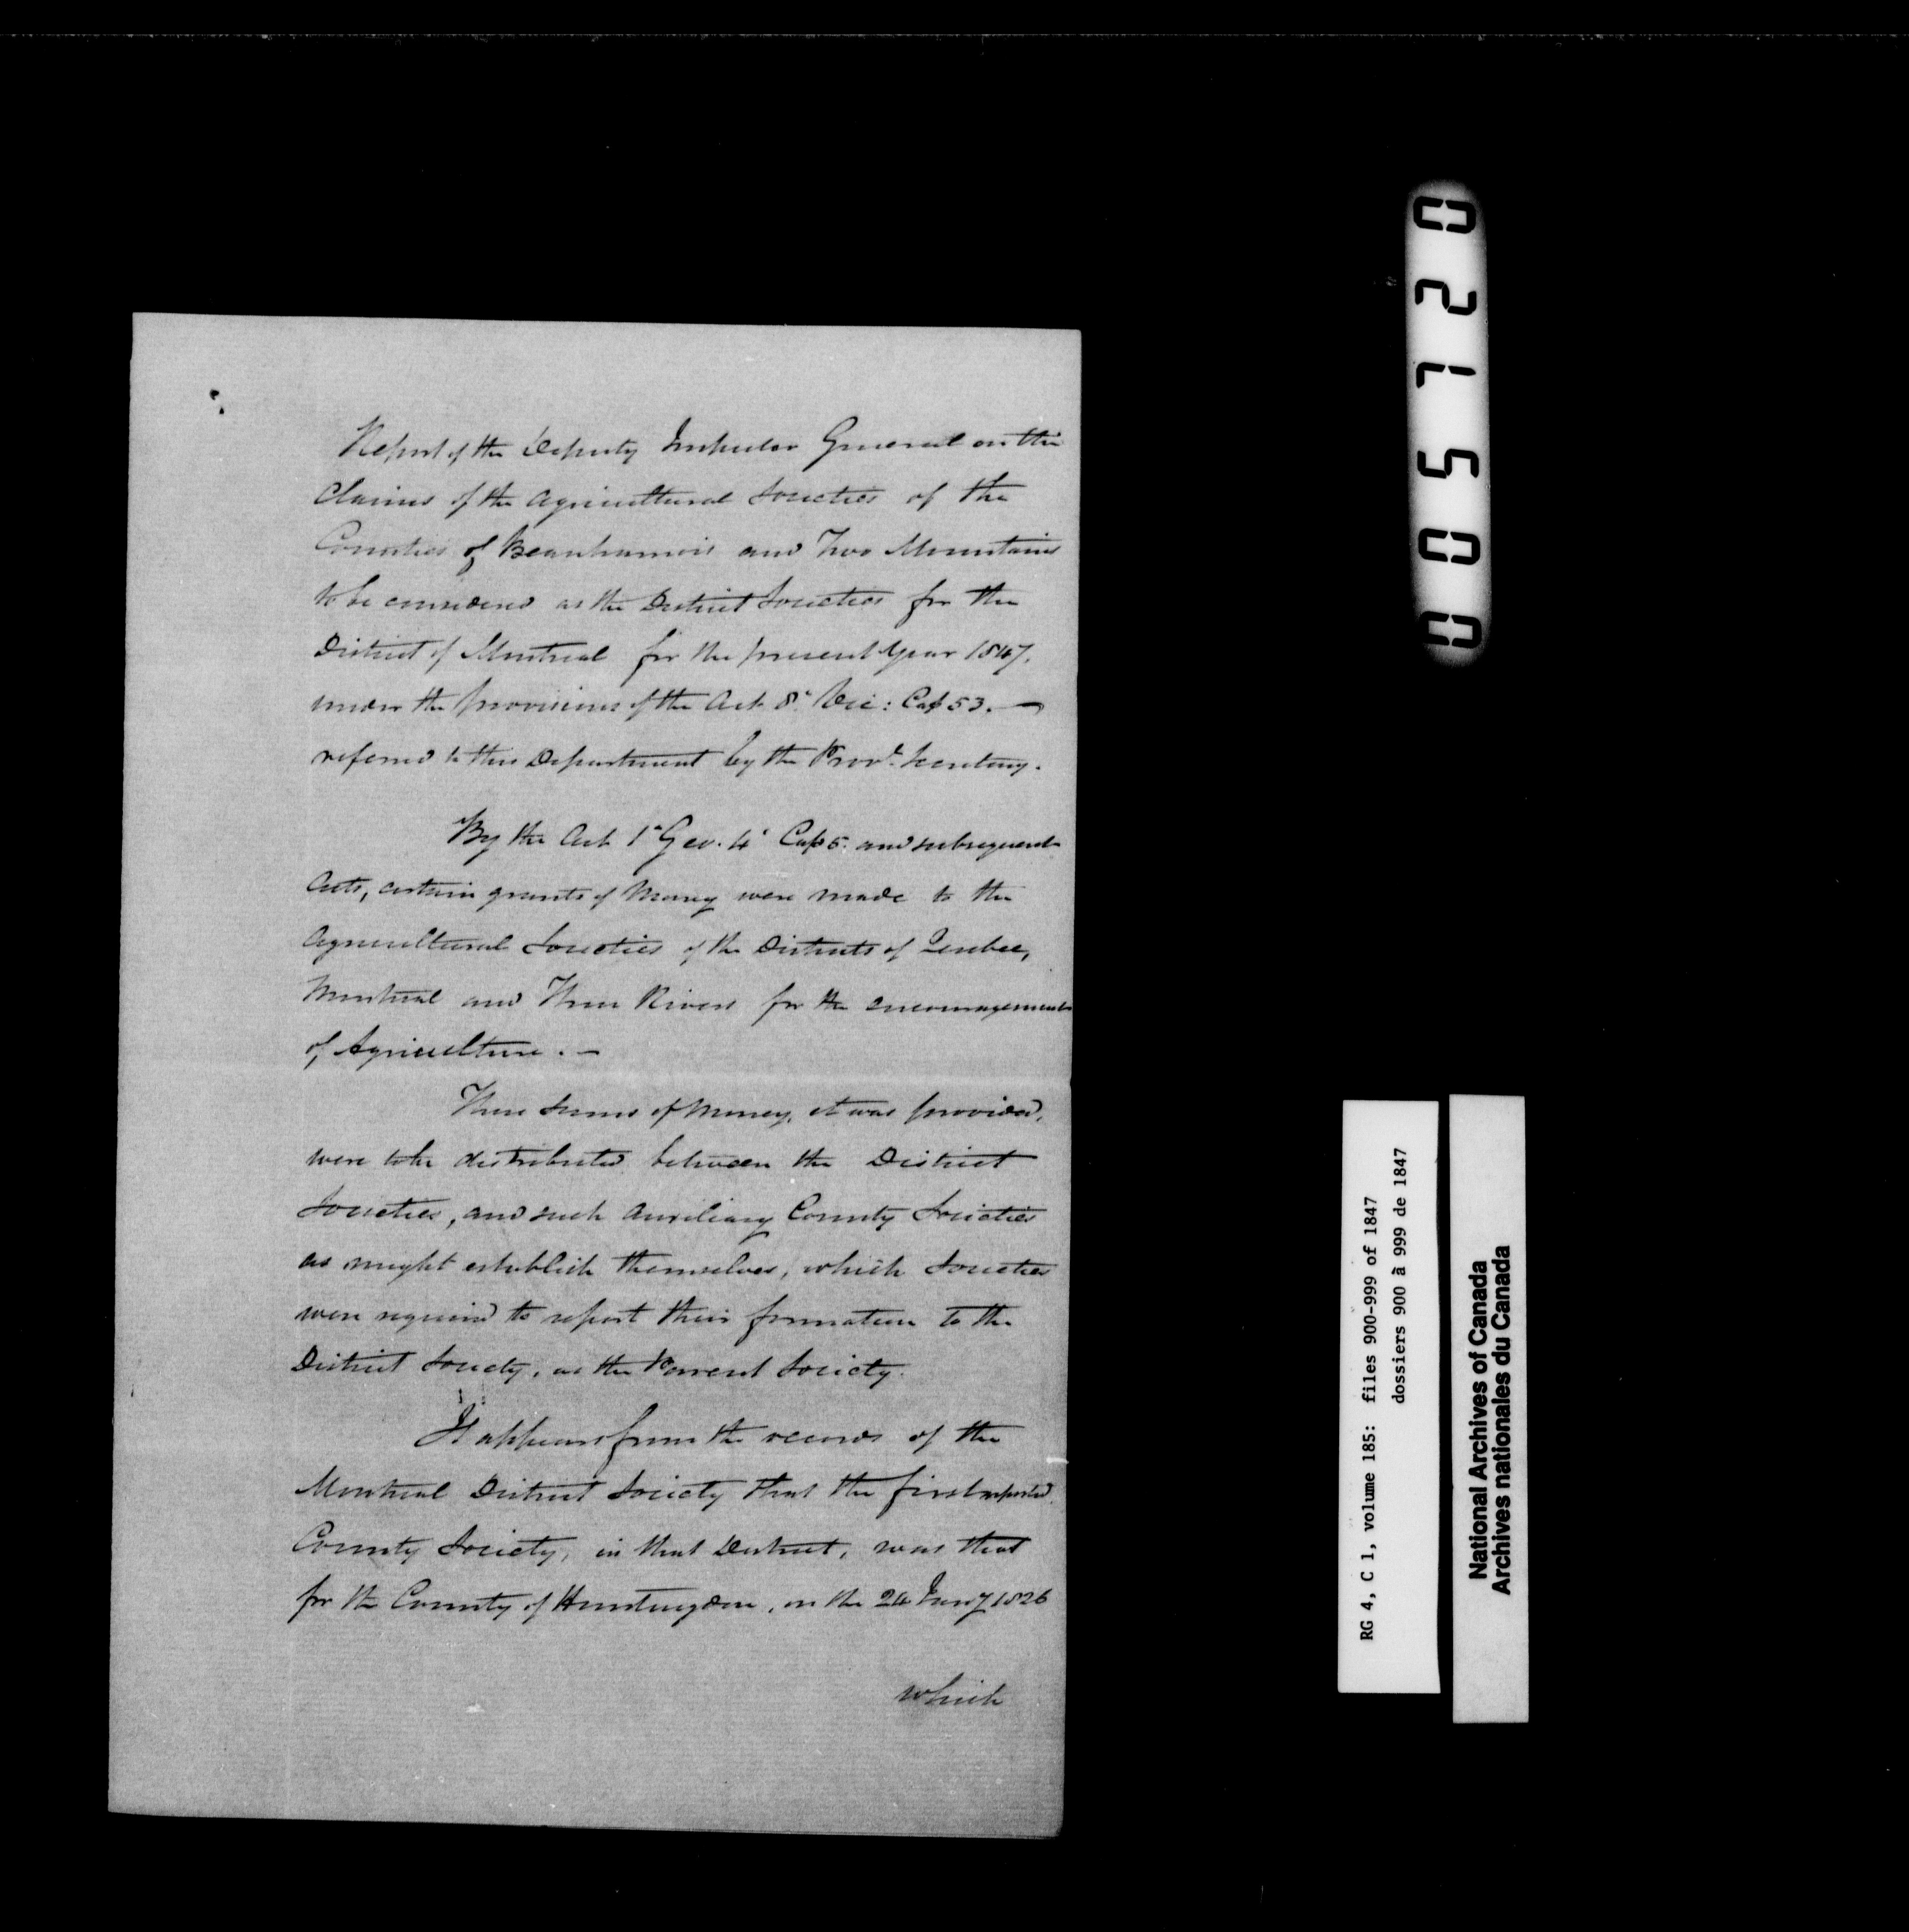 Report of the Deputy Inspector General on the
Claims of the Agricultural Societies of the
Counties of Beauharnois and Two Mountains
to be considered as the District Societies for the
District of Montreal for the present Year 1847,
under the provisions of the Act 8' Vic: Cap 53. —
referred to this Department by the Provl. Secretary.
By the Act 1st Geo. 4' Cap 5. and subsequent
Acts, certain grants of Money were made to the
Agricultural Societies of the Districts of Quebec,
Montreal and Three Rivers for the encouragement
of Agriculture. —
These Sums of Money, it was provided,
were to be distributed between the District
Societies, and such Auxiliary County Societies
as might establish themselves, which Societies
were required to report their formation to the
District Society, as the Parent Society.
It appears from the records of the
Montreal District Society that the first reported
County Society, in that District, was that
for the County of Huntingdon, on the 24 Jany 1826
which
005120
RG 4, C 1, volume 185: files 900-999 of 1847
dossiers 900 à 999 de 1847
National Archives of Canada
Archives nationales du Canada